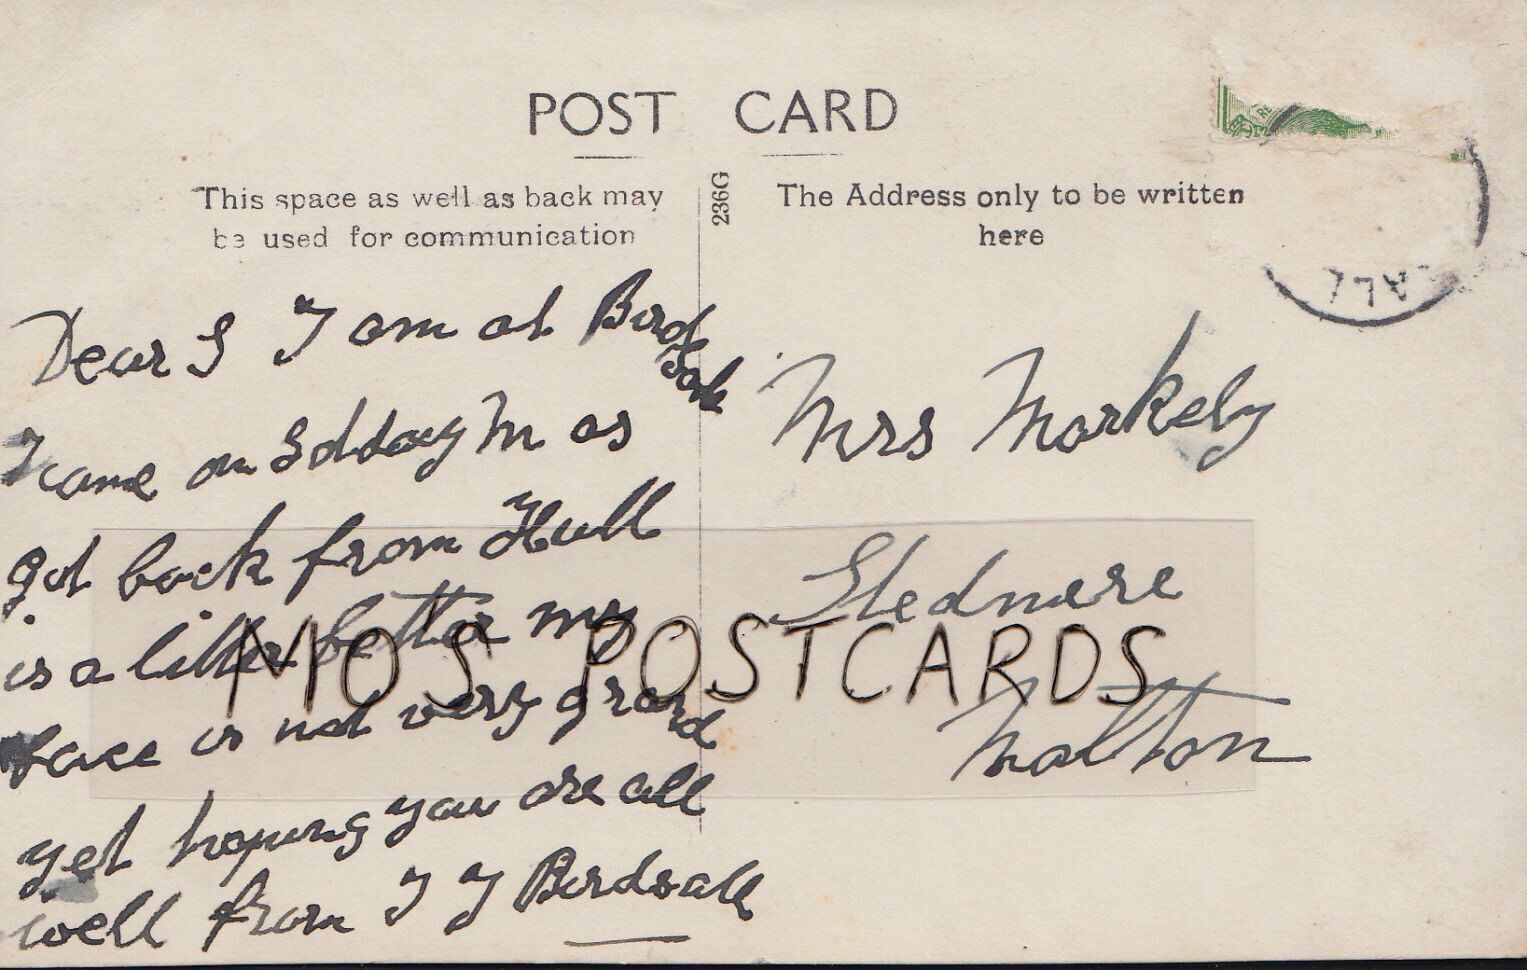 POST CARD
This space as well as back may
be used for communication
236G
The Address only to be written
here
Dear S I am at Birdsale
I came on M as
got back from Hull
is a better my
face is not very grand
yet hoping you are all
well from J J Birdsall
Mrs Markely
Sledmere
Malton
MOS POSTCARDS
ALL